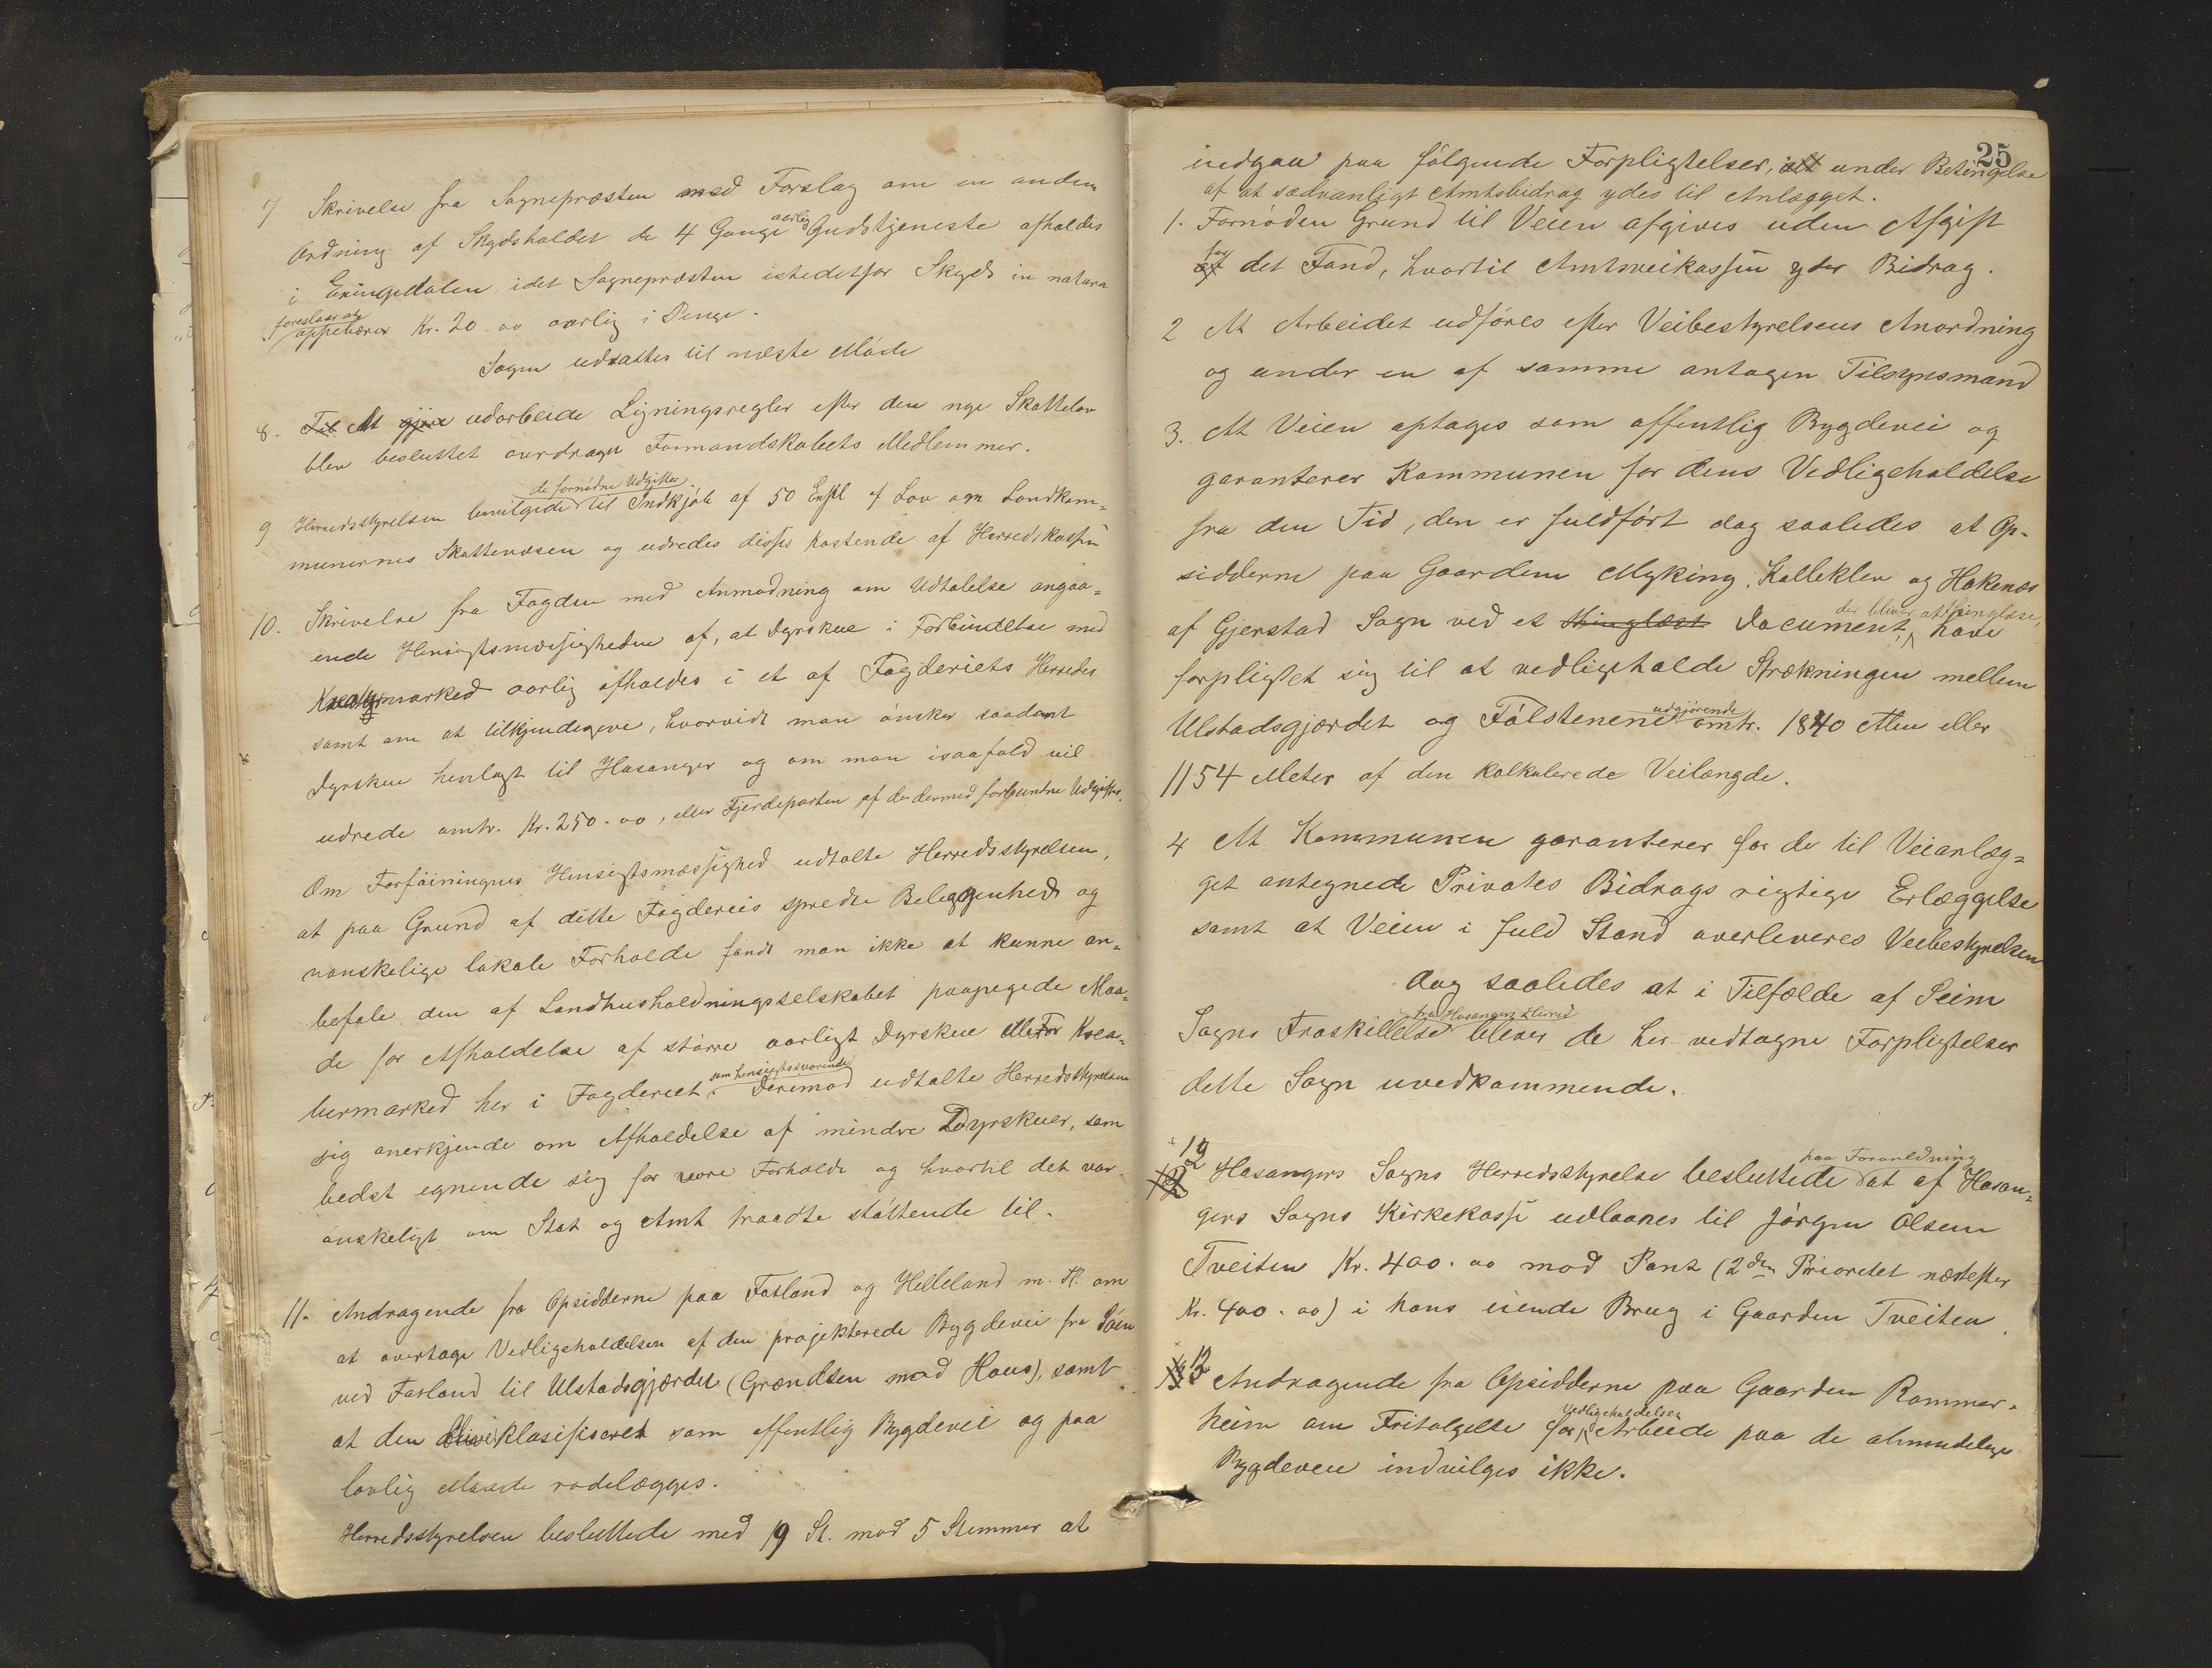 7/ Skrivelse fra Sognepræsten med Forslag om en anden
Ordning af Skydsholdet de 4 Gange aarlig Gudstjeneste afholdes
i Exingedalen, idet Sognepræsten istedetfor Skyds in natura
foreslaar at
oppebærer Kr. 20.00 aarlig i Penge.
Sagen udsattes til næste Møde
8. Til At gjøre udarbeide Ligningsregler efter den nye Skattelov
blev besluttet overdragen Formandskabets Medlemmer.
de fornødne Udgifter
9 Herredsstyrelsen bevilgede til Indkjøb af 50 Expl. af Lov om Landkom-
munernes Skattevæsen og udredes disses Kostende af Herredskassen
10. Skrivelse fra Fogden med Anmodning om Udtalelse angaa-
ende Hensigtsmæssigheden af, at Dyrskue i Forbindelse med
Kvægmarked aarlig afholdes i et af Fogderiets Herreder
samt om at tilkjendegive, hvorvidt man ønsker saadant
Dyrskue henlagt til Hosanger og om man isaafald vil
udrede omtr. Kr. 250.00, eller Fjerdeparten af de dermed forbundne Udgifter.
Om Forføiningens Hensigtsmæssighed udtalte Herredsstyrelsen,
at paa Grund af dette Fogderies spredte Beliggenhed og
vanskelige lokale Forholde fandt man ikke at kunne an-
befale den af Landhusholdningsselskabet paapegede Maa-
de for Afholdelse af større aarligt Dyrskue eller Krea-
turmarked her i Fogderiet som hensigtssvarende. Derimod udtalte Herredsstyrelsen
sig anerkjende om Afholdelse af mindre Dyrskuer, som
bedst egnende sig for vore Forholde og hvortil det var
ønskeligt om Stat og Amt traadte støttende til.
11. Andragende fra Opsidderne paa Fatland og Helleland m. fl. om
at overtage Vedligeholdelsen af den projekterede Bygdevei fra Søen
ved Fatland til Ulstadsgjærdet (Grændsen mod Haus), samt
at den bliver klasificeret som offentlig Bygdevei og paa
lovlig Maade rodelægges.
Herredsstyrelsen besluttede med 19 St. mod 5 Stemmer at
25
indgaa paa følgende Forpligtelser, alt under Betingelse
af at sædvanligt Amtsbidrag ydes til Anlægget.
1. Fornøden Grund til Veien afgives uden Afgift
for
af det Fond, hvortil Amtsveikassen yder Bidrag.
2 At Arbeidet udføres efter Veibestyrelsens Anordning
og under en af samme antagen Tilsynsmand
3. At Veien optages som offentlig Bygdevei og
garanterer Kommunen for dens Vedligeholdelse
fra den Tid, den er fuldført dog saaledes at Op-
sidderne paa Gaardene Myking, Kalleklev og Hokenæs
af Gjerstad Sogn ved et thinglæst Document, der bliver at thinglæse, have
forpligtet sig til at vedligeholde Strækningen mellem
Ulstadsgjærdet og Fôlstenene udgjørende omtr. 1840 Alen eller
1154 Meter af den kalkulerede Veilængde.
4 At Kommunen garanterer for de til Veianlæg-
get antegnede Privates Bidrags rigtige Erlæggelse
samt at Veien i fuld Stand overleveres Veibestyrelsen
dog saaledes at i Tilfælde af Seim
Sogns Fraskillelse fra Hosangers Herred bliver de her vedtagne Forpligtelser
dette Sogn uvedkommende.
12 Hosangers Sogns Herredsstyrelse besluttede paa Foranledning at af Hosan-
gers Sogns Kirkekasse udlaanes til Jørgen Olsen
Tveiten Kr. 400.00 mod Pant (2den Prioritet næstefter
Kr. 400.00) i hans eiende Brug i Gaarden Tveiten.
13 Andragende fra Opsidderne paa Gaarden Rommar-
heim om Fritagelse for Vedligeholdelses Arbeide paa de almindelige
Bygdeveie indvilges ikke.